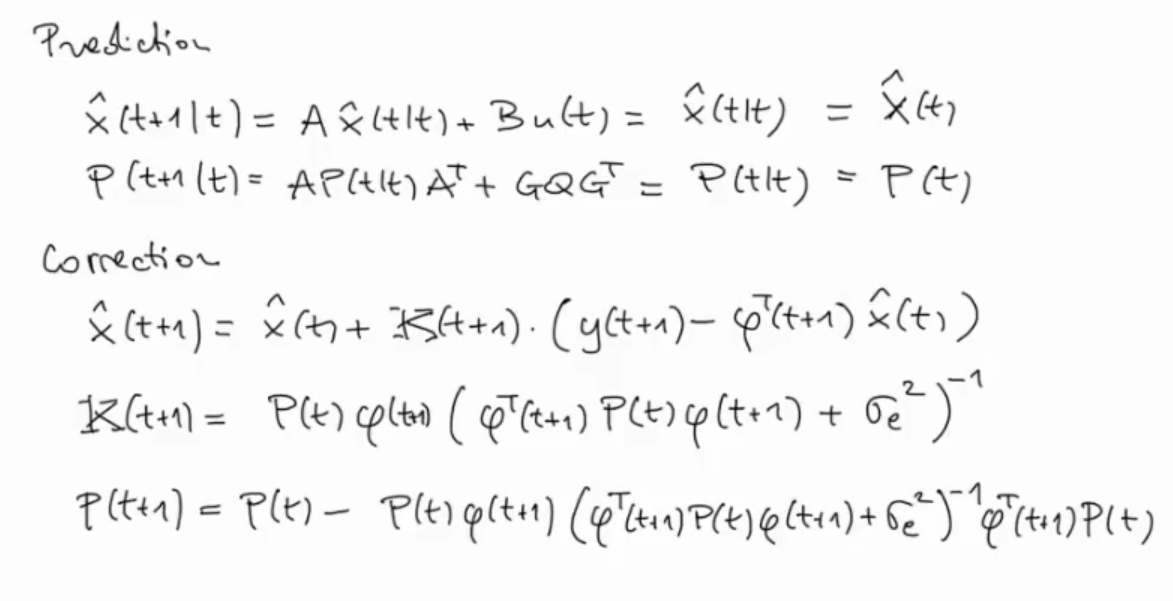 Prediction
x̂(t+1|t) = A x̂(t|t) + B u(t) = x̂(t|t) = x̂(t)
P(t+1|t) = A P(t|t) Aᵀ + G Q Gᵀ = P(t|t) = P(t)
Correction
x̂(t+1) = x̂(t) + K(t+1) · (y(t+1) − φᵀ(t+1) x̂(t))
K(t+1) = P(t) φ(t+1) (φᵀ(t+1) P(t) φ(t+1) + σₑ²)⁻¹
P(t+1) = P(t) − P(t) φ(t+1) (φᵀ(t+1) P(t) φ(t+1) + σₑ²)⁻¹ φᵀ(t+1) P(t)